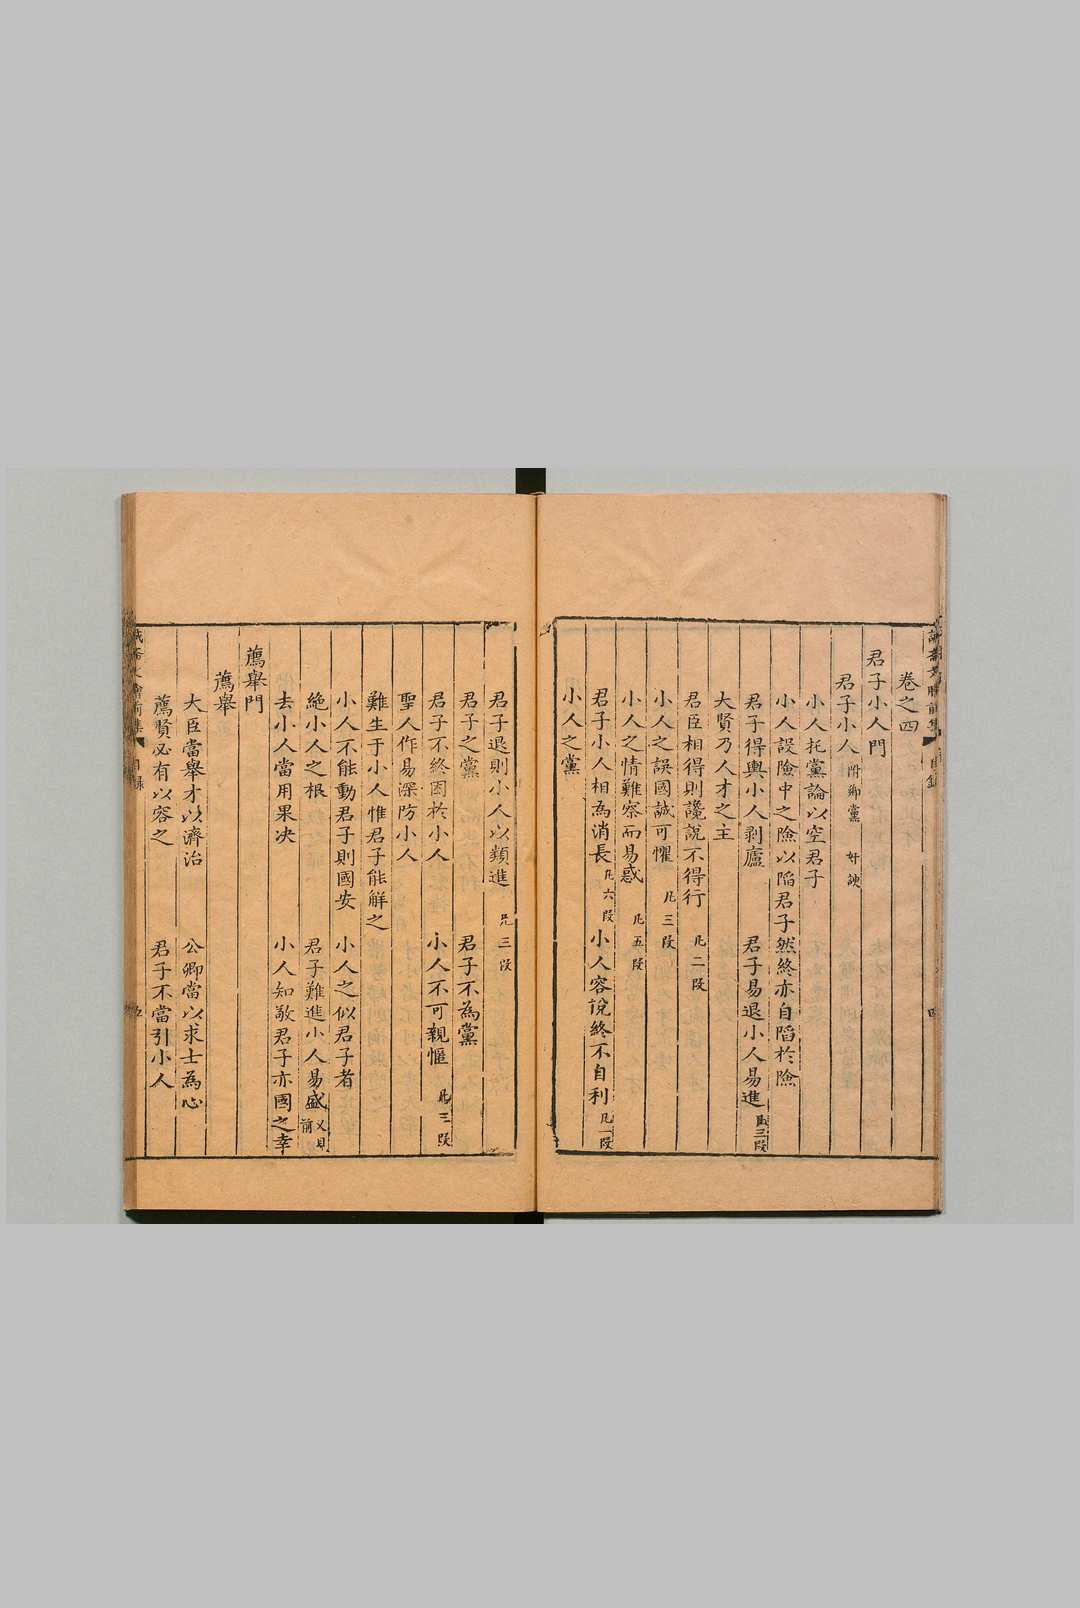 卷之四
君子小人門
君子小人 附 鄉黨 奸諛
小人托黨論以空君子
小人設險中之險以陷君子然終亦自陷於險
君子得輿小人剥廬 君子易退小人易進 凡三段
大賢乃人才之主
君臣相得則讒說不得行 凡二段
小人之誤國誠可懼 凡三段
小人之情難察而易惑 凡五段
君子小人相為消長 凡六段 小人容說終不自利 凡一段
小人之黨
君子退則小人以類進 凡三段
君子之黨 君子不為黨
君子不終困於小人 小人不可親愜 凡三段
聖人作易深防小人
難生于小人惟君子能解之
小人不能動君子則國安 小人之似君子者
絕小人之根 君子難進小人易盛 又見前
去小人當用果决 小人知敬君子亦國之幸
薦舉門
薦舉
大臣當舉才以濟治 公卿當以求士為心
薦賢必有以容之 君子不當引小人